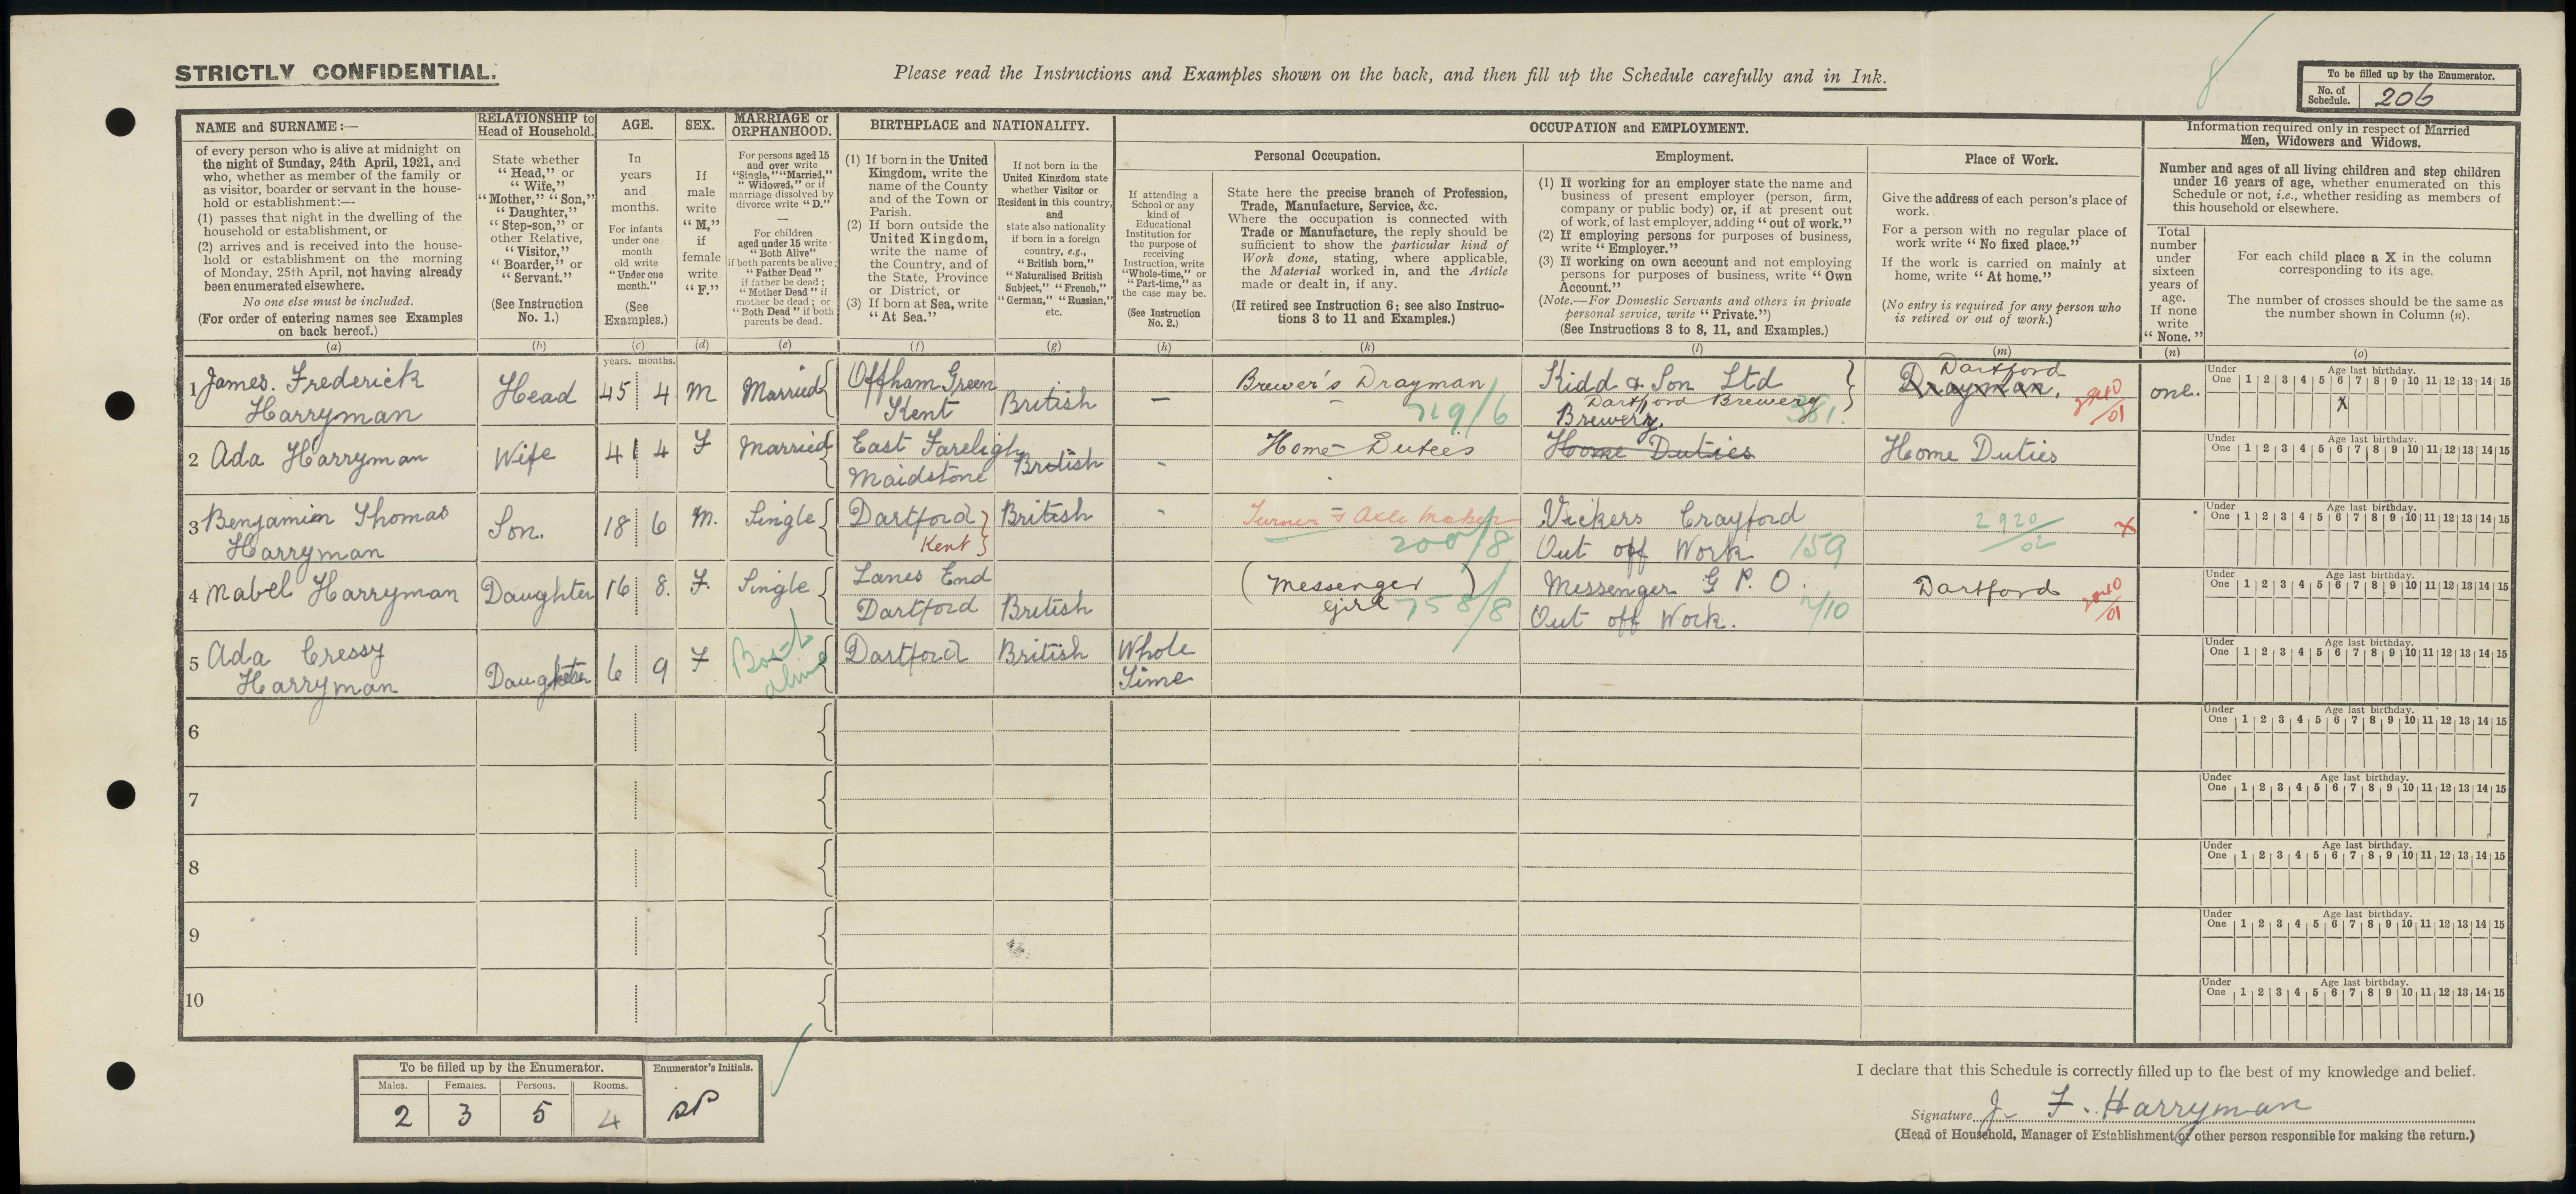 STRICTLY CONFIDENTIAL.
Please read the Instructions and Examples shown on the back, and then fill up the Schedule carefully and in Ink.
To be filled up by the Enumerator.
No. of Schedule. 206
NAME and SURNAME:—
of every person who is alive at midnight on
the night of Sunday, 24th April, 1921, and
who, whether as member of the family or
as visitor, boarder or servant in the house-
hold or establishment:—
(1) passes that night in the dwelling of the
household or establishment, or
(2) arrives and is received into the house-
hold or establishment on the morning
of Monday, 25th April, not having already
been enumerated elsewhere.
No one else must be included.
(For order of entering names see Examples
on back hereof.)
(a)
RELATIONSHIP to
Head of Household.
State whether
"Head," or
"Wife,"
"Mother," "Son,"
"Daughter,"
"Step-son," or
other Relative,
"Visitor,"
"Boarder," or
"Servant."
(See Instruction
No. 1.)
(b)
AGE.
In
years
and
months.
For infants
under one
month
old write
"Under one
month."
(See
Examples.)
(c)
SEX.
If
male
write
"M,"
if
female
write
"F."
(d)
MARRIAGE or
ORPHANHOOD.
For persons aged 15
and over write
"Single," "Married,"
"Widowed," or if
marriage dissolved by
divorce write "D."
—
For children
aged under 15 write
"Both Alive"
if both parents be alive;
"Father Dead"
if father be dead;
"Mother Dead" if
mother be dead; or
"Both Dead" if both
parents be dead.
(e)
BIRTHPLACE and NATIONALITY.
(1) If born in the United
Kingdom, write the
name of the County
and of the Town or
Parish.
(2) If born outside the
United Kingdom,
write the name of
the Country, and of
the State, Province
or District, or
(3) If born at Sea, write
"At Sea."
(f)
If not born in the
United Kingdom state
whether Visitor or
Resident in this country,
and
state also nationality
if born in a foreign
country, e.g.,
"British born,"
"Naturalised British
Subject," "French,"
"German," "Russian,"
etc.
(g)
OCCUPATION and EMPLOYMENT.
If attending a
School or any
kind of
Educational
Institution for
the purpose of
receiving
Instruction, write
"Whole-time," or
"Part-time," as
the case may be.
(See Instruction
No. 2.)
(h)
Personal Occupation.
State here the precise branch of Profession,
Trade, Manufacture, Service, &c.
Where the occupation is connected with
Trade or Manufacture, the reply should be
sufficient to show the particular kind of
Work done, stating, where applicable,
the Material worked in, and the Article
made or dealt in, if any.
(If retired see Instruction 6; see also Instruc-
tions 3 to 11 and Examples.)
(k)
Employment.
(1) If working for an employer state the name and
business of present employer (person, firm,
company or public body) or, if at present out
of work, of last employer, adding "out of work."
(2) If employing persons for purposes of business,
write "Employer."
(3) If working on own account and not employing
persons for purposes of business, write "Own
Account."
(Note.—For Domestic Servants and others in private
personal service, write "Private.")
(See Instructions 3 to 8, 11, and Examples.)
(l)
Place of Work.
Give the address of each person's place of
work.
For a person with no regular place of
work write "No fixed place."
If the work is carried on mainly at
home, write "At home."
(No entry is required for any person who
is retired or out of work.)
(m)
Information required only in respect of Married
Men, Widowers and Widows.
Number and ages of all living children and step children
under 16 years of age, whether enumerated on this
Schedule or not, i.e., whether residing as members of
this household or elsewhere.
Total
number
under
sixteen
years of
age.
If none
write
"None."
(n)
For each child place a X in the column
corresponding to its age.
The number of crosses should be the same as
the number shown in Column (n).
(o)
years. months.
1 James. Frederick Harryman
Head 45 4 M Married
Offham Green Kent British —
Brewer's Drayman 719/6
Kidd & Son Ltd
Dartford Brewery
Brewery. 381.
Dartford
Drayman.
one.
Under One 1 2 3 4 5 6 7 8 9 10 11 12 13 14 15
Age last birthday.
X
2 Ada Harryman
Wife 41 4 F Married
East Fareligh Maidstone British -
Home Duties
Home Duties
Home Duties
Under One 1 2 3 4 5 6 7 8 9 10 11 12 13 14 15
Age last birthday.
3 Benjamin Thomas Harryman
Son. 18 6 M. Single
Dartford Kent British -
Turner & Axle Maker 200/8
Vickers Crayford
Out off Work 159
2920/02 X
Under One 1 2 3 4 5 6 7 8 9 10 11 12 13 14 15
Age last birthday.
4 Mabel Harryman
Daughter 16 8. F. Single
Lanes End Dartford British
(Messenger) girl 758/8
Messenger G P. O.
Out off Work.
Dartford
Under One 1 2 3 4 5 6 7 8 9 10 11 12 13 14 15
Age last birthday.
5 Ada Cressy Harryman
Daughter 6 9 F Both alive
Dartford British
Whole Time
Under One 1 2 3 4 5 6 7 8 9 10 11 12 13 14 15
Age last birthday.
6
Under One 1 2 3 4 5 6 7 8 9 10 11 12 13 14 15
Age last birthday.
7
Under One 1 2 3 4 5 6 7 8 9 10 11 12 13 14 15
Age last birthday.
8
Under One 1 2 3 4 5 6 7 8 9 10 11 12 13 14 15
Age last birthday.
9
Under One 1 2 3 4 5 6 7 8 9 10 11 12 13 14 15
Age last birthday.
10
Under One 1 2 3 4 5 6 7 8 9 10 11 12 13 14 15
Age last birthday.
To be filled up by the Enumerator.
Males. Females. Persons. Rooms.
2 3 5 4
Enumerator's Initials.
I declare that this Schedule is correctly filled up to the best of my knowledge and belief.
Signature J. F. Harryman
(Head of Household, Manager of Establishment or other person responsible for making the return.)